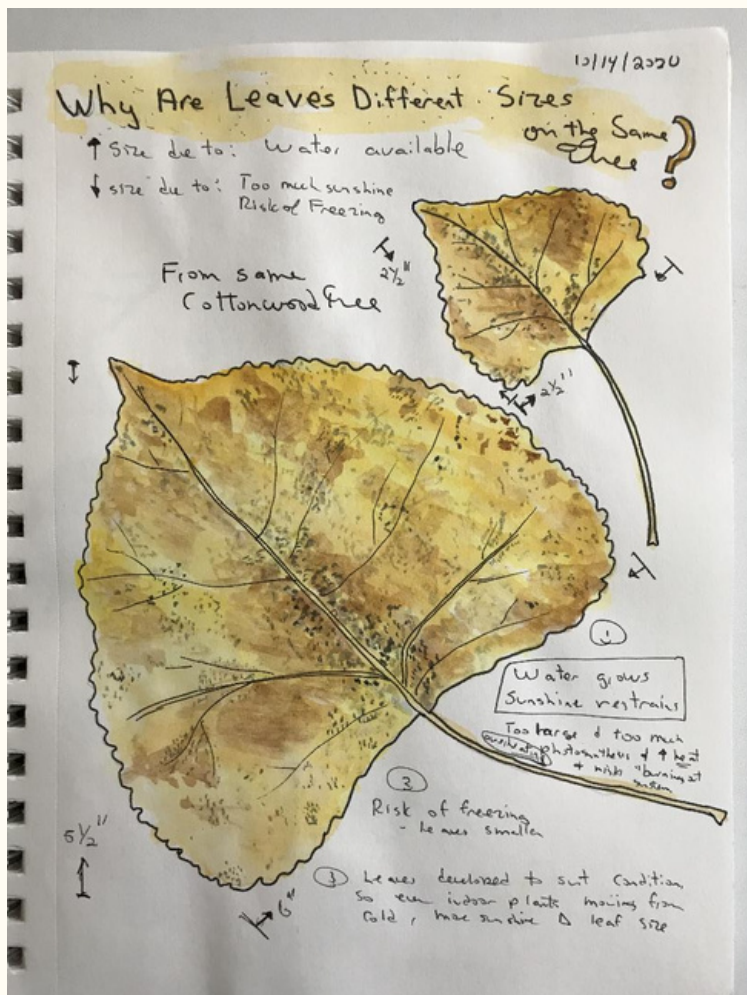 10/14/2020
Why Are Leaves Different Sizes
on the Same
Tree ?
↑ Size due to: Water available
↓ size due to: Too much sunshine
Risk of Freezing
2½"
From same
Cottonwood Tree
2½"
①
Water grows
Sunshine restrains
Too large & too much
photosynthesis & ↑ heat
& risks "burning out
system
②
Risk of freezing
- Leaves smaller
5½"
6"
③ Leaves developed to suit condition
So even indoor plants moving from
Cold, more sunshine Δ leaf size